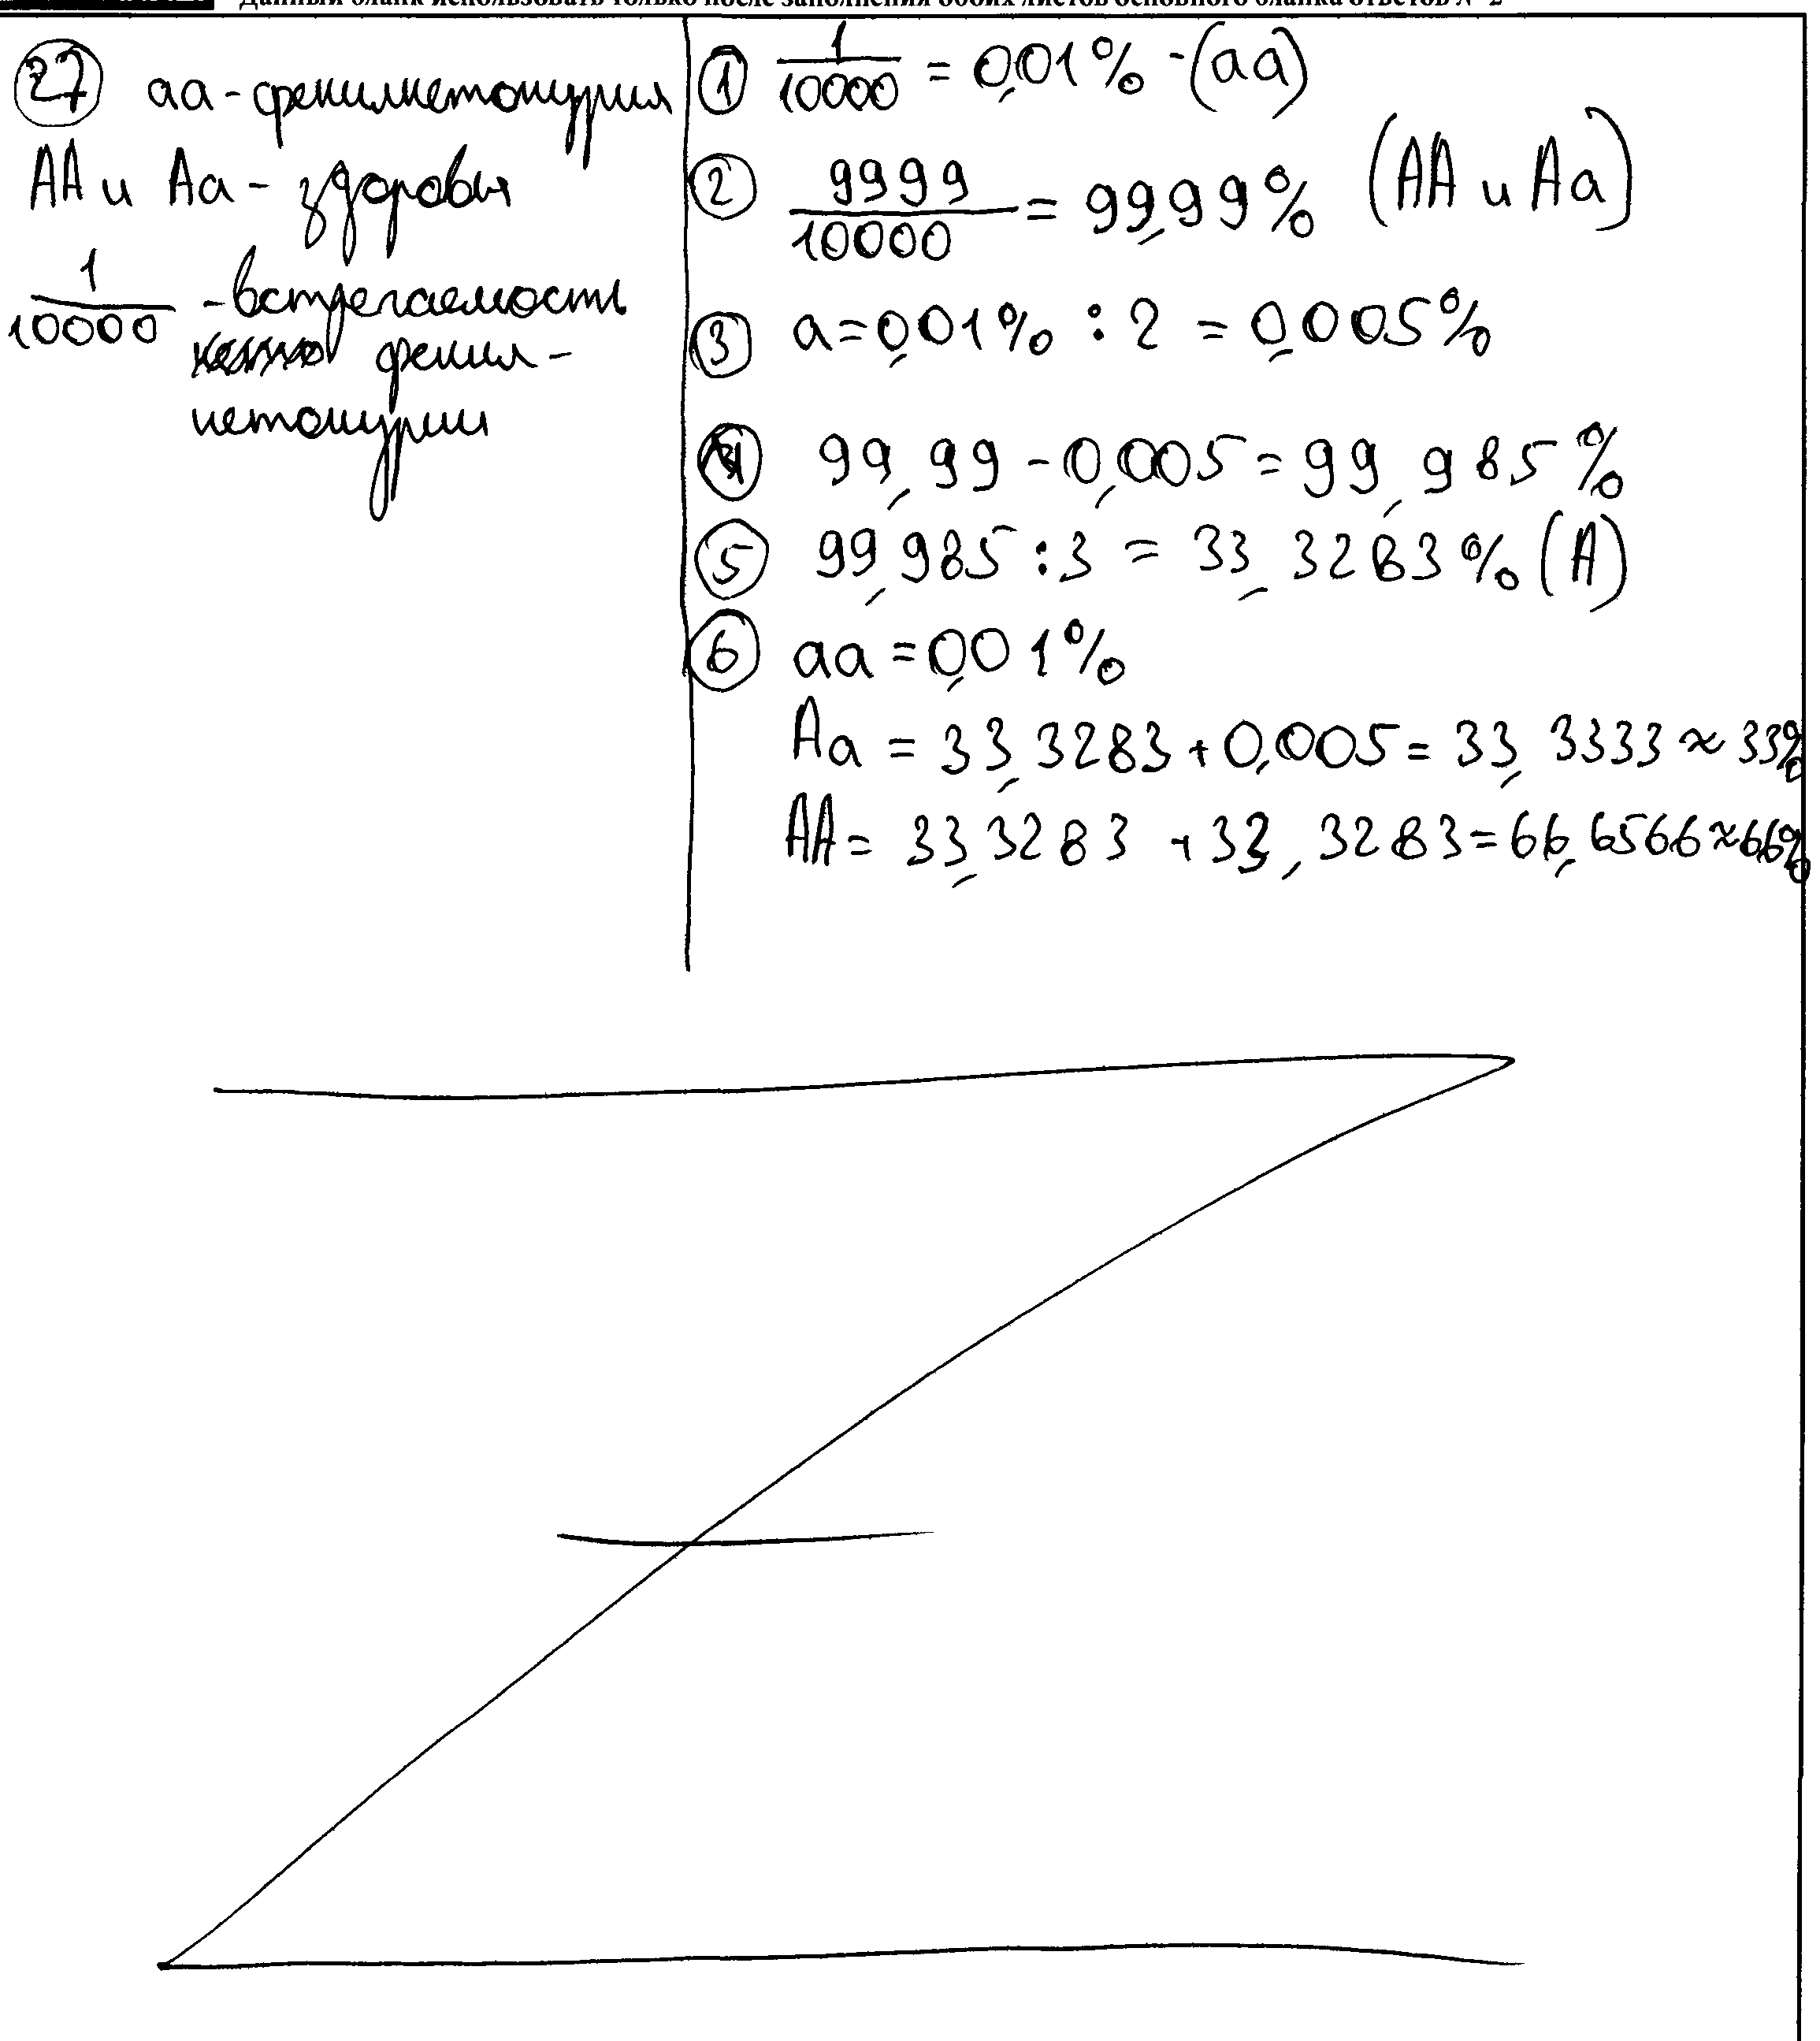 Данный бланк использовать только после заполнения обоих листов основного бланка ответов № 2
27 аа - фенилкетонурия
АА и Аа - здоровы
1/10000 - встречаемость
фенил-
кетонурии
1 1/10000 = 0,01% - (аа)
2 9999/10000 = 99,99% (АА и Аа)
3 а = 0,01% : 2 = 0,005%
4 99,99 - 0,005 = 99,985%
5 99,985 : 3 = 33,3283% (А)
6 аа = 0,01%
Аа = 33,3283 + 0,005 = 33,3333 ≈ 33%
АА = 33,3283 + 33,3283 = 66,6566 ≈ 66%